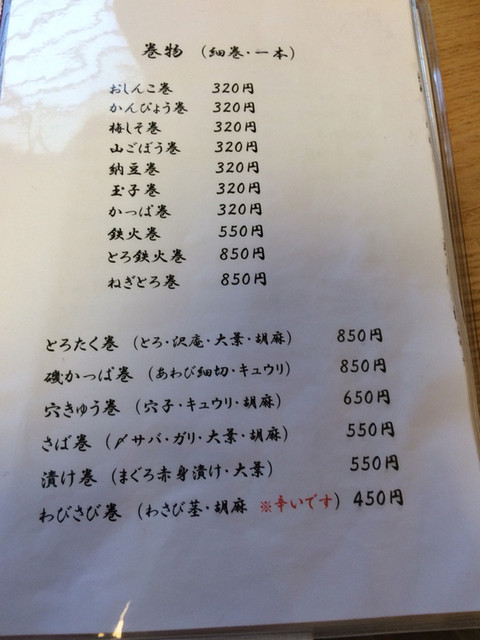 巻物（細巻・一本）
おしんこ巻 320円
かんぴょう巻 320円
梅しそ巻 320円
山ごぼう巻 320円
納豆巻 320円
玉子巻 320円
かっぱ巻 320円
鉄火巻 550円
とろ鉄火巻 850円
ねぎとろ巻 850円
とろたく巻（とろ・沢庵・大葉・胡麻） 850円
磯かっぱ巻（あわび細切・キュウリ） 850円
穴きゅう巻（穴子・キュウリ・胡麻） 650円
さば巻（〆サバ・ガリ・大葉・胡麻） 550円
漬け巻（まぐろ赤身漬け・大葉） 550円
わびさび巻（わさび茎・胡麻 ※辛いです） 450円